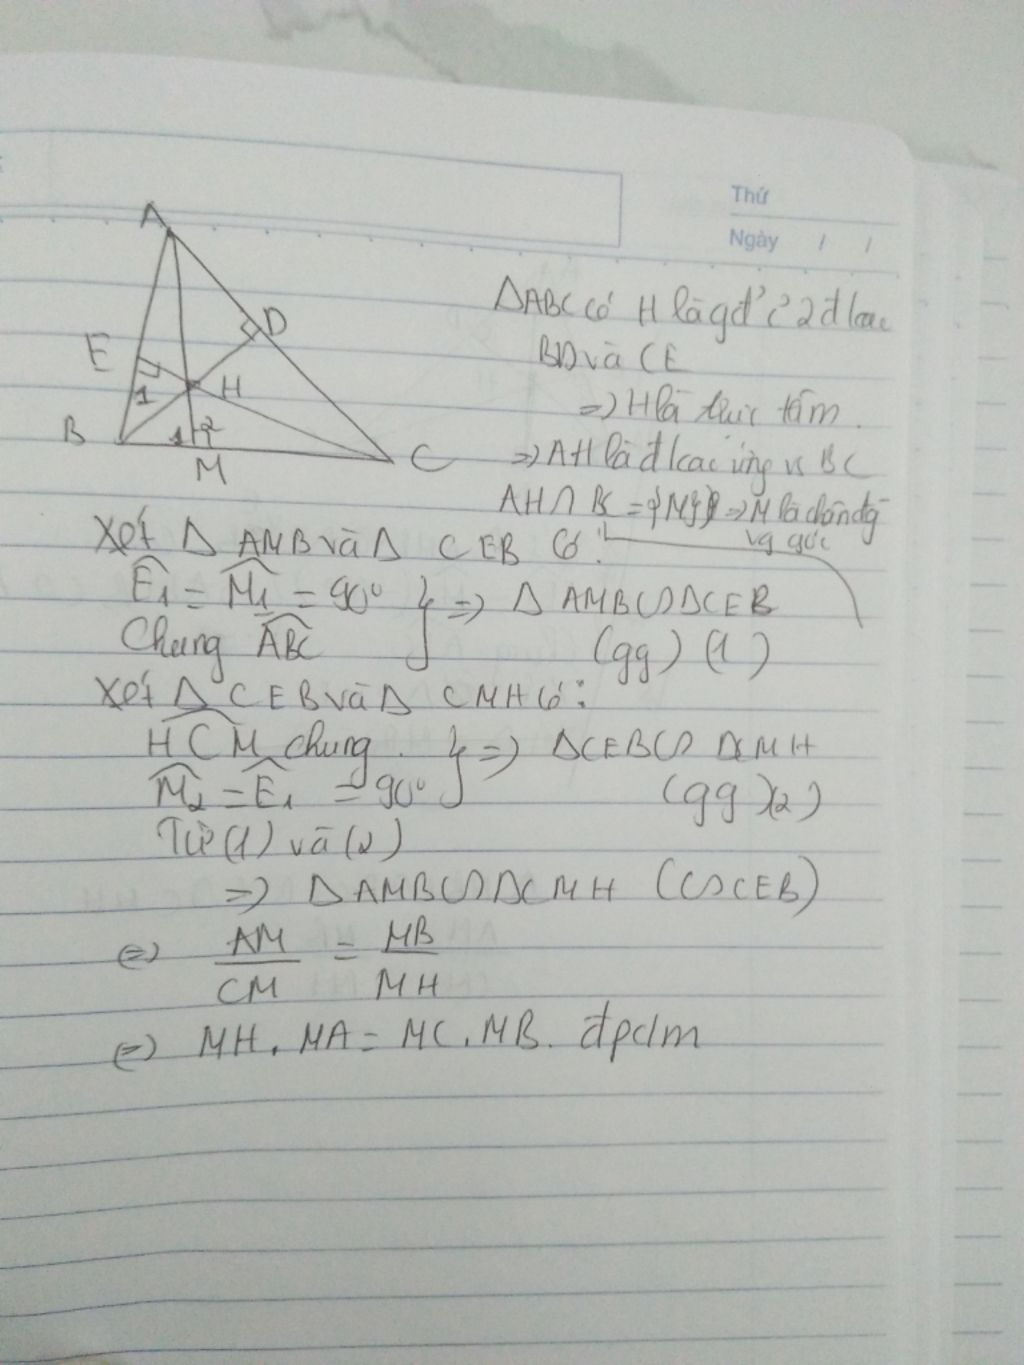 Thứ
Ngày / /
A
E
D
1
H
B
1 2
M
C
ΔABC có H là gđ' c' 2 đ/cao
BD và CE
=> H là trực tâm.
=> AH là đ/cao ứng vs BC
AH ∩ BC = {M} => M là chân đg
vg góc
Xét Δ AMB và Δ CEB có:
Ê₁ = M̂₁ = 90° } => Δ AMB ∽ ΔCEB
Chung ABC (gg) (1)
Xét Δ CEB và Δ CMH có:
HCM chung. } => ΔCEB ∽ ΔCMH
M̂₂ = Ê₁ = 90° (gg)(2)
Từ (1) và (2)
=> Δ AMB ∽ ΔCMH (∽ CEB)
(=) AM/CM = MB/MH
(=) MH . MA = MC . MB. đpcm